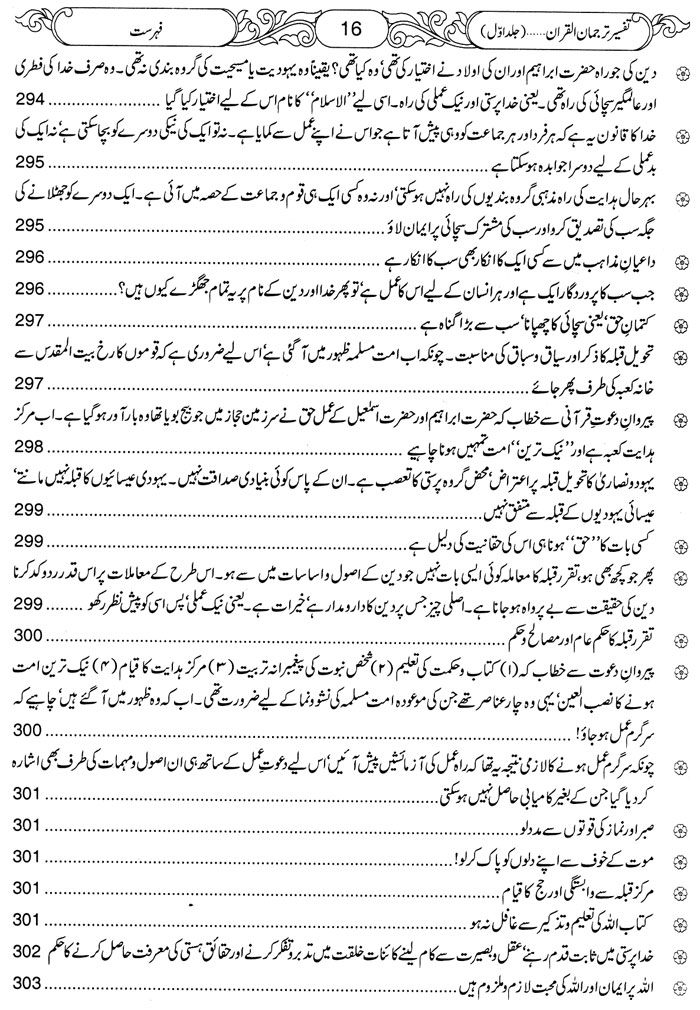 تفسیر ترجمان القران......(جلد اوّل) 16 فہرست
دین کی جو راہ حضرت ابراہیم اور ان کی اولاد نے اختیار کی تھی‘ وہ کیا تھی؟ یقیناً وہ یہودیت یا مسیحیت کی گروہ بندی نہ تھی۔ وہ صرف خدا کی فطری
اور عالمگیر سچائی کی راہ تھی۔ یعنی خدا پرستی اور نیک عملی کی راہ۔ اسی لیے ’’الاسلام‘‘ کا نام اس کے لیے اختیار کیا گیا ........................ 294
خدا کا قانون یہ ہے کہ ہر فرد اور ہر جماعت کو وہی پیش آتا ہے جو اس نے اپنے عمل سے کمایا ہے۔ نہ تو ایک کی نیکی دوسرے کو بچا سکتی ہے‘ نہ ایک کی
بد عملی کے لیے دوسرا جوابدہ ہو سکتا ہے ........................ 295
بہر حال ہدایت کی راہ مذہبی گروہ بندیوں کی راہ نہیں ہو سکتی‘ اور نہ وہ کسی ایک ہی قوم و جماعت کے حصہ میں آئی ہے۔ ایک دوسرے کو جھٹلانے کی
جگہ سب کی تصدیق کرو اور سب کی مشترک سچائی پر ایمان لاؤ ........................ 295
داعیانِ مذاہب میں سے کسی ایک کا انکار بھی سب کا انکار ہے ........................ 296
جب سب کا پروردگار ایک ہے اور ہر انسان کے لیے اس کا عمل ہے‘ تو پھر خدا اور دین کے نام پر یہ تمام جھگڑے کیوں ہیں؟ ........................ 296
کتمانِ حق‘ یعنی سچائی کا چھپانا‘ سب سے بڑا گناہ ہے ........................ 297
تحویل قبلہ کا ذکر اور سیاق و سباق کی مناسبت۔ چونکہ اب امت مسلمہ ظہور میں آ گئی ہے‘ اس لیے ضروری ہے کہ قوموں کا رخ بیت المقدس سے
خانہ کعبہ کی طرف پھر جائے ........................ 297
پیروانِ دعوتِ قرآنی سے خطاب کہ حضرت ابراہیم اور حضرت اسمٰعیل کے عمل حق نے سرزمین حجاز میں جو بیج بویا تھا وہ بار آور ہو گیا ہے۔ اب مرکز
ہدایت کعبہ ہے اور ’’نیک ترین‘‘ امت تمہیں ہونا چاہیے ........................ 298
یہود و نصاریٰ کا تحویل قبلہ پر اعتراض‘ محض گروہ پرستی کا تعصب ہے۔ ان کے پاس کوئی بنیادی صداقت نہیں۔ یہودی عیسائیوں کا قبلہ نہیں مانتے‘
عیسائی یہودیوں کے قبلہ سے متفق نہیں ........................ 299
کسی بات کا ’’حق‘‘ ہونا ہی اس کی حقانیت کی دلیل ہے ........................ 299
پھر جو کچھ بھی ہو‘ تقرر قبلہ کا معاملہ کوئی ایسی بات نہیں جو دین کے اصول و اساسات میں سے ہو۔ اس طرح کے معاملات پر اس قدر رد و کد کرنا
دین کی حقیقت سے بے پرواہ ہو جانا ہے۔ اصلی چیز جس پر دین کا دارومدار ہے‘ خیرات ہے۔ یعنی نیک عملی‘ پس اسی کو پیش نظر رکھو ........ 299
تقرر قبلہ کا حکم عام اور مصالح و حکم ........................ 300
پیروانِ دعوت سے خطاب کہ (۱) کتاب و حکمت کی تعلیم (۲) شخص نبوت کی پیغمبرانہ تربیت (۳) مرکز ہدایت کا قیام (۴) نیک ترین امت
ہونے کا نصب العین‘ یہی وہ چار عناصر تھے جن کی موعودہ امت مسلمہ کی نشوونما کے لیے ضرورت تھی۔ اب کہ وہ ظہور میں آ گئے ہیں‘ چاہیے کہ
سرگرم عمل ہو جاؤ! ........................ 300
چونکہ سرگرم عمل ہونے کا لازمی نتیجہ یہ تھا کہ راہ عمل کی آزمائشیں پیش آئیں‘ اس لیے دعوتِ عمل کے ساتھ ہی ان اصول و مہمات کی طرف بھی اشارہ
کر دیا گیا جن کے بغیر کامیابی حاصل نہیں ہو سکتی ........................ 301
صبر اور نماز کی قوتوں سے مدد لو ........................ 301
موت کے خوف سے اپنے دلوں کو پاک کر لو! ........................ 301
مرکز قبلہ سے وابستگی اور حج کا قیام ........................ 301
کتاب اللہ کی تعلیم و تذکیر سے غافل نہ ہو ........................ 301
خدا پرستی میں ثابت قدم رہنے‘ عقل و بصیرت سے کام لینے کائنات خلقت میں تدبر و تفکر کرنے اور حقائق ہستی کی معرفت حاصل کرنے کا حکم 302
اللہ پر ایمان اور اللہ کی محبت لازم و ملزوم ہیں ........................ 303